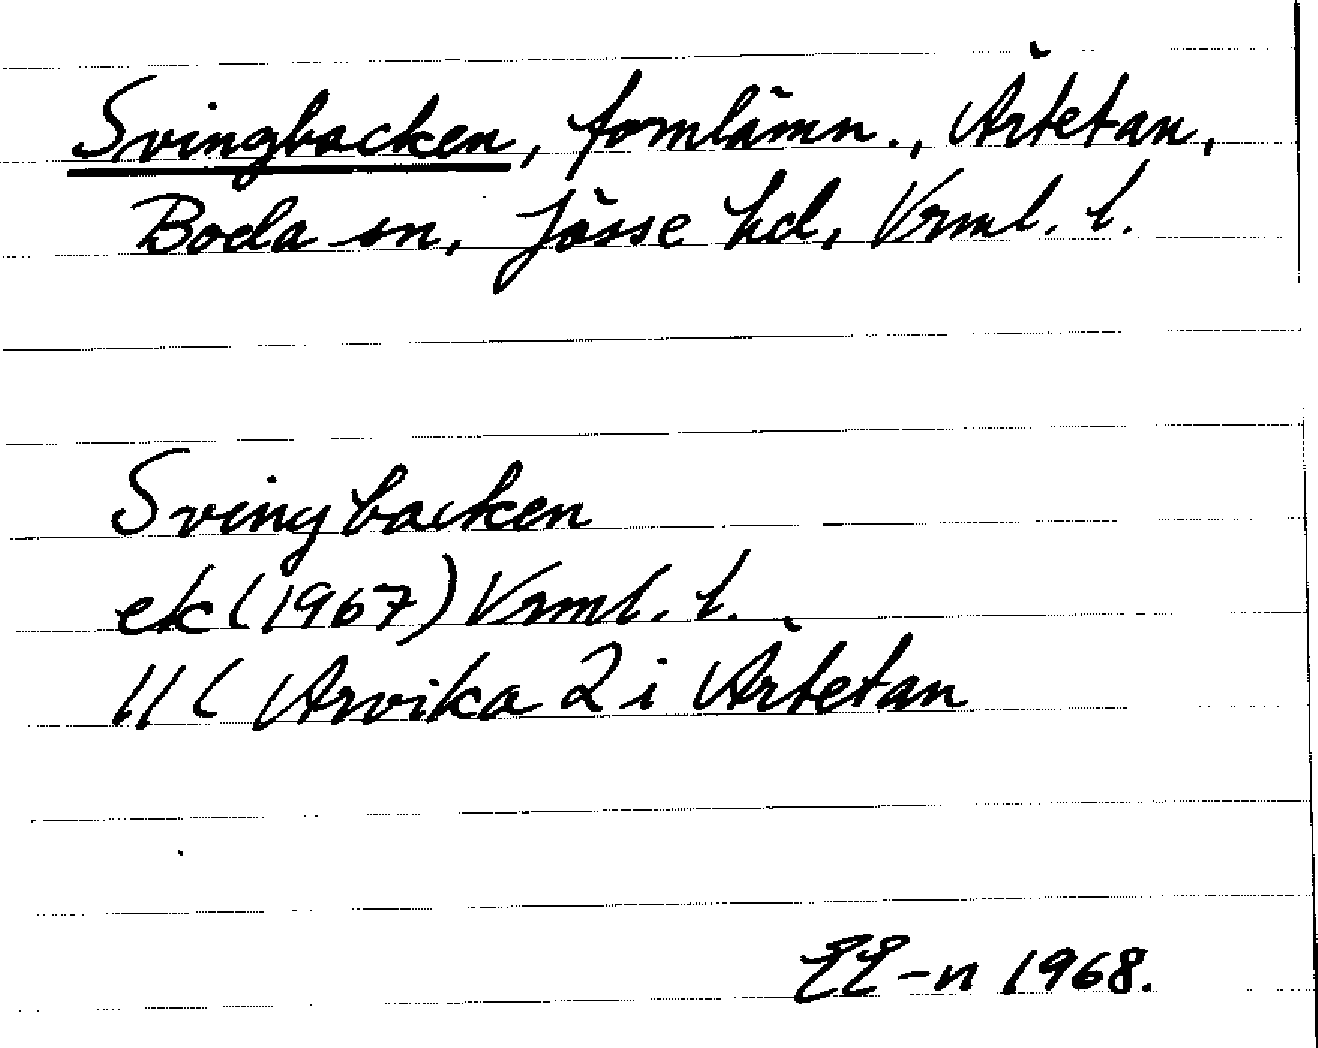 Svingbacken, fornlämn., Ärtetan,
Boda sn, Jösse hd, Vrml. l.
Svingbacken
ek (1967) Vrml. l.
11 C Arvika 2 i Ärtetan
EE-n 1968.